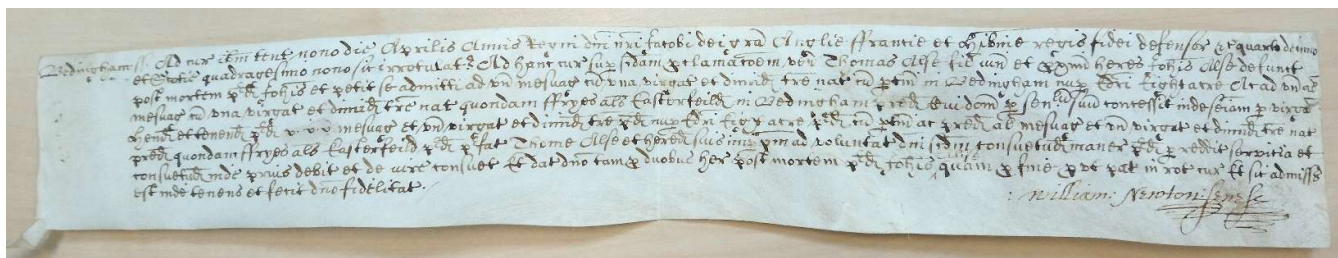 Bedingham ss. Ad cur ibm tent nono die Aprilis Annis Regni dni nri Jacobi dei gra Anglie ffrancie et Hibnie regis fidei defensor &c quarto decimo
et Scotie quadragesimo nono sic irrotulat Ad hanc cur sup scdam proclamacoem ven Thomas Alse fil iun et proxim heres Johis Alse defunct
post mortem pd Johis et petit se admitti ad vn mesuag cu vna virgat et dimid tre nat cu ptin in Bedingham nup Edri Eightacre Ac ad vn al
mesuag cu vna virgat et dimid tre nat quondam ffryes als Easterfeild in Bedingham pred Cui dom p sen suu concessit inde seisiam p virga
Hend et tenend pd mesuag et vn virgat et dimid tre pd nup Edri Eightacre pd cu ptin ac pred al mesuag et vn virgat et dimid tre nat
pred quondam ffryes als Easterfeild pd pfat Thome Alse et hered suis imppm ad voluntat dni scdm consuetud maner pd p reddit servitia et
consuetud inde prius debit et de iure consuet Et dat dno tam p duobus her post mortem pd Johis quam p fine p vt pat in rot cur Et sic admiss
est inde tenens et fecit dno fidelitat.
William: Newton: senesc